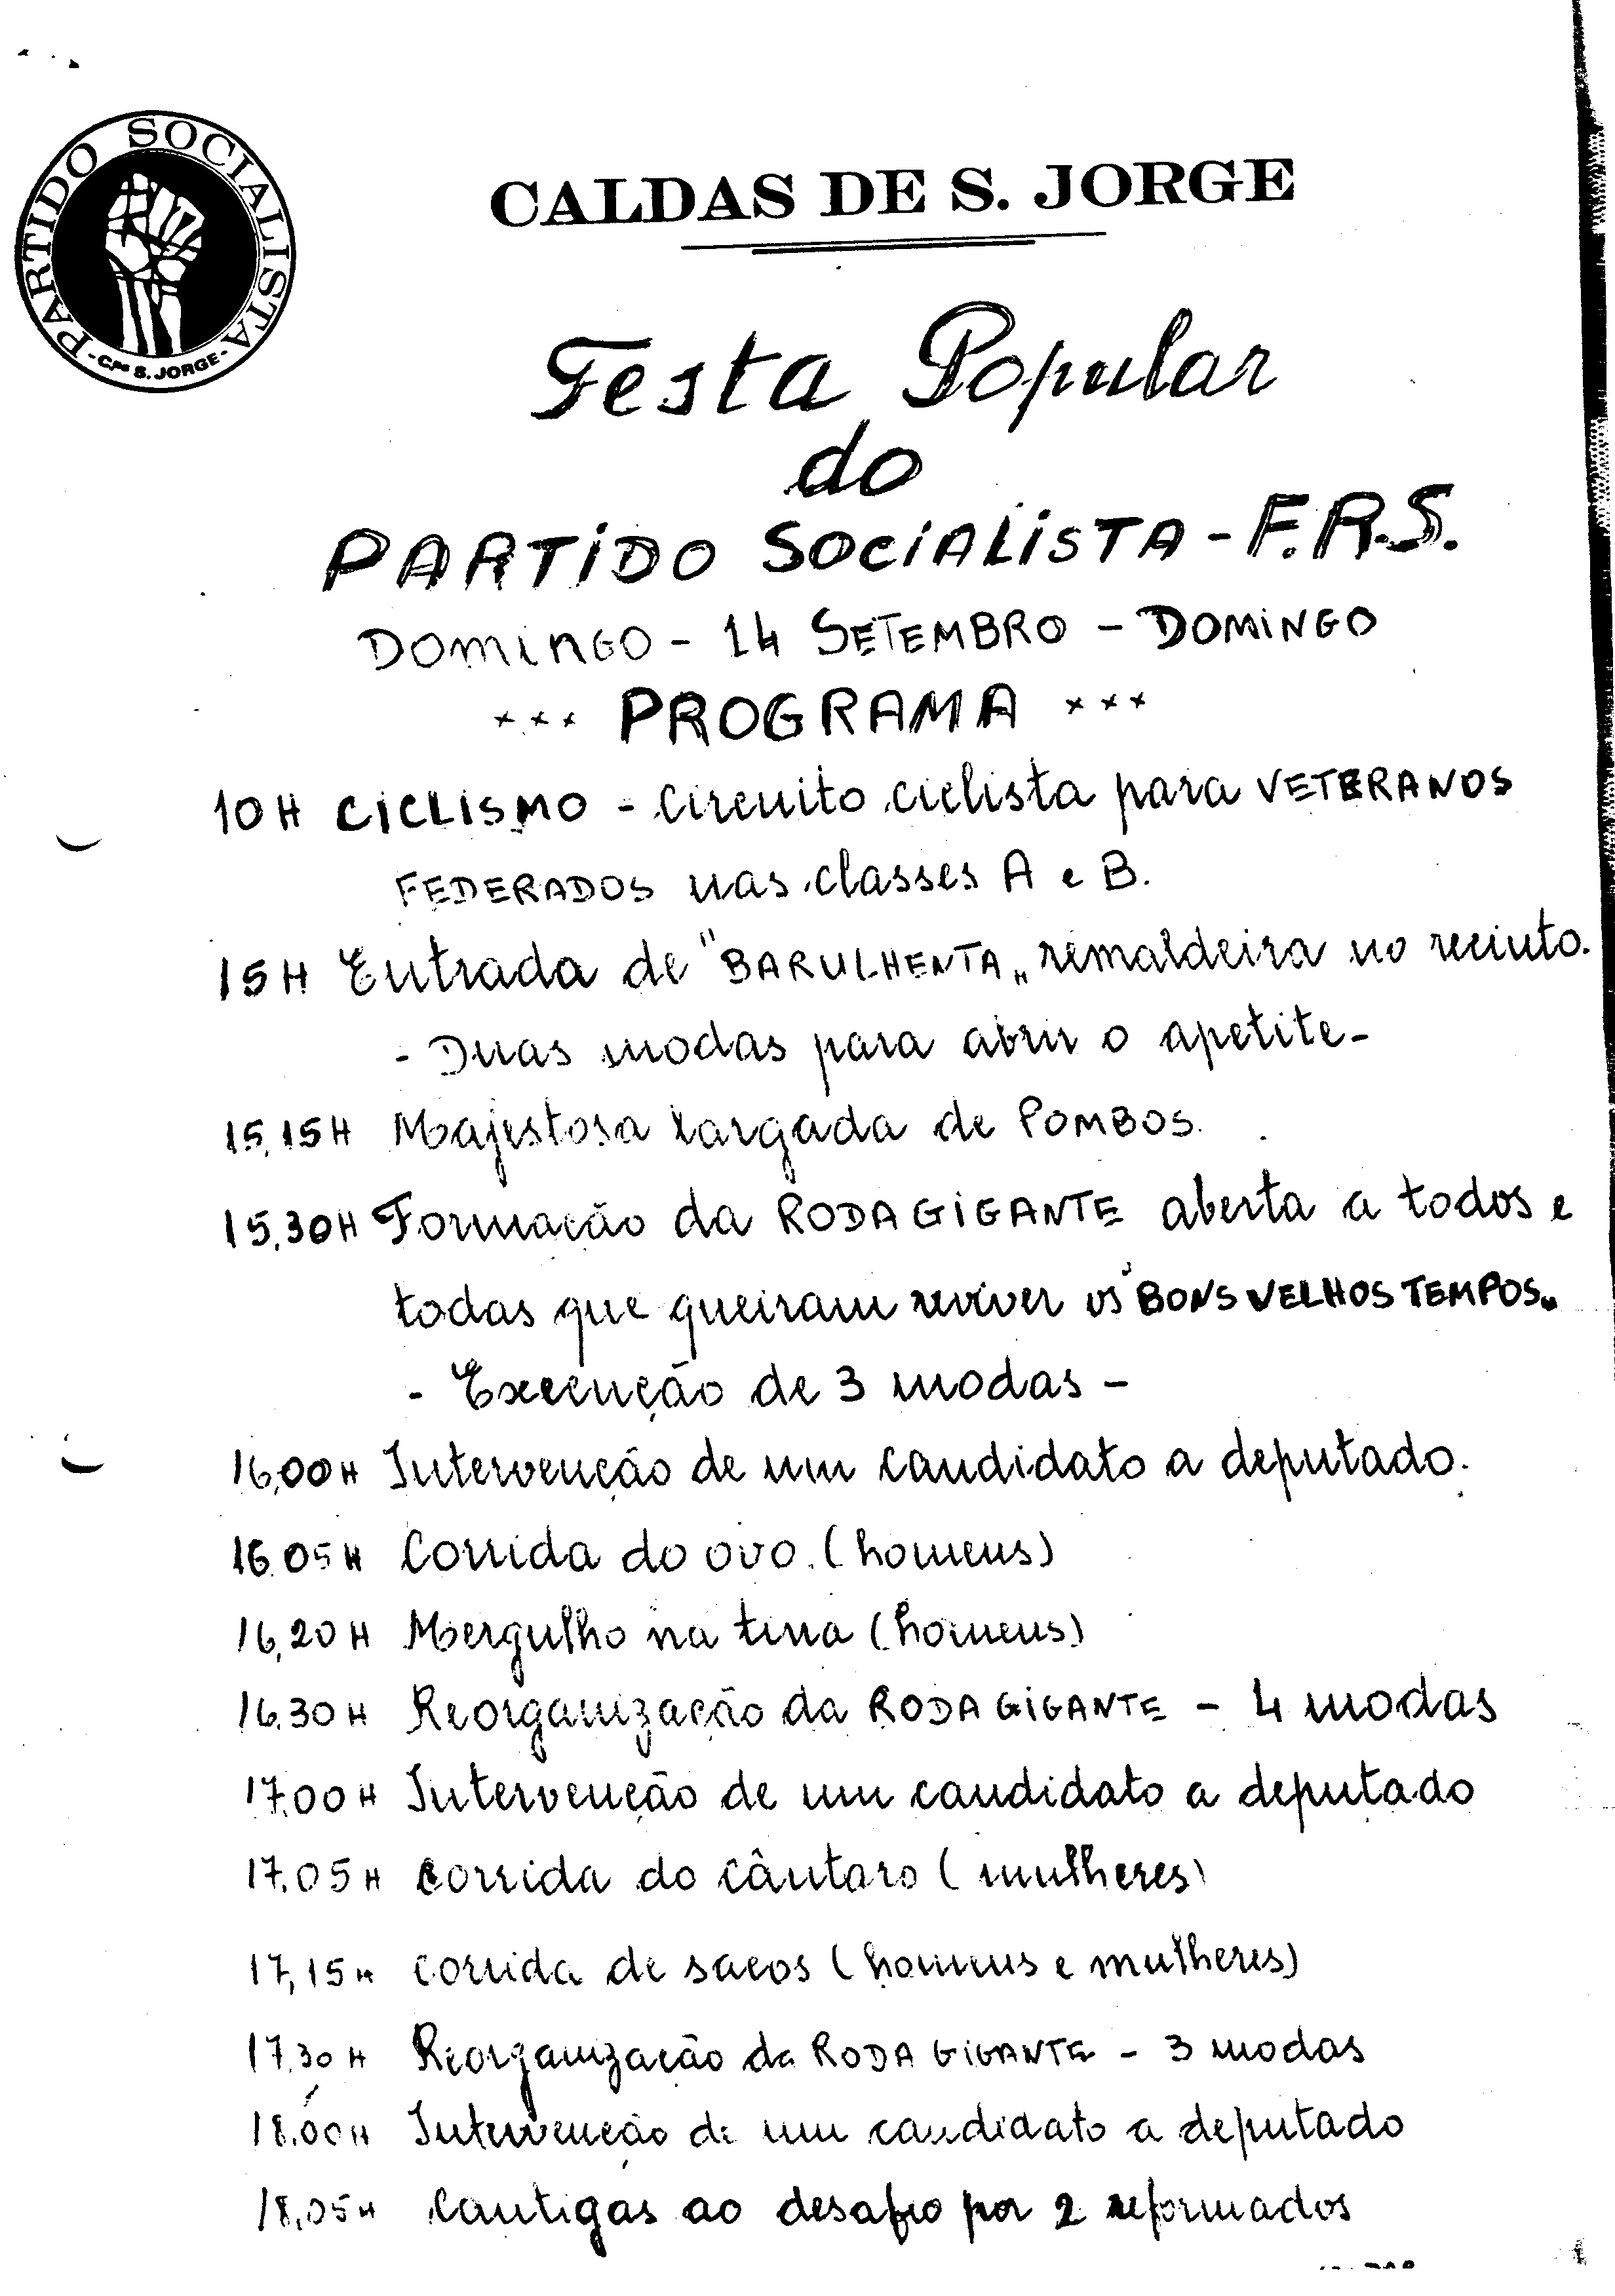 PARTIDO SOCIALISTA
- C.das S. JORGE -
CALDAS DE S. JORGE
Festa Popular
do
PARTIDO SOCIALISTA - F.R.S.
DOMINGO - 14 SETEMBRO - DOMINGO
x x x PROGRAMA x x x
10H CICLISMO - Circuito ciclista para VETERANOS
FEDERADOS nas classes A e B.
15H Entrada de "BARULHENTA" remaldeira no recinto.
- Duas modas para abrir o apetite -
15,15H Majestosa largada de POMBOS.
15,30H Formação da RODA GIGANTE aberta a todos e
todas que queiram reviver os "BONS VELHOS TEMPOS"
- Execução de 3 modas -
16,00H Intervenção de um candidato a deputado.
16,05H Corrida do ovo. (homens)
16,20H Mergulho na tina (homens)
16,30H Reorganização da RODA GIGANTE - 4 modas
17,00H Intervenção de um candidato a deputado
17,05H Corrida do cântaro (mulheres)
17,15H corrida de sacos (homens e mulheres)
17,30H Reorganização da RODA GIGANTE - 3 modas
18,00H Intervenção de um candidato a deputado
18,05H Cantigas ao desafio por 2 reformados